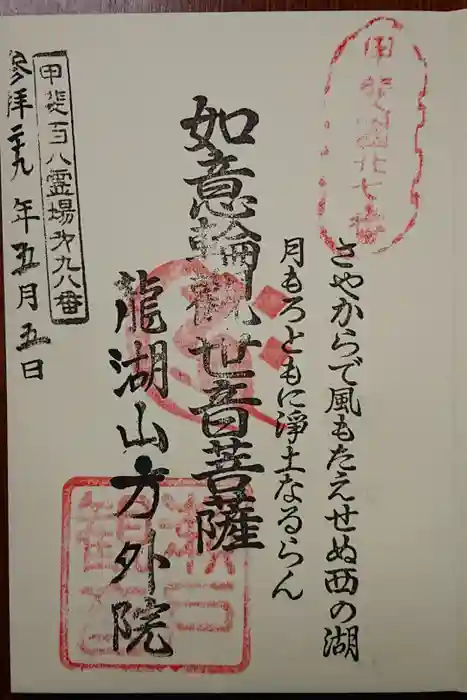 さやからで風もたえせぬ西の湖
月もろともに淨土なるらん
如意輪觀世音菩薩
龍湖山方外院
甲斐百八霊場第九八番
参拝二十九年五月五日